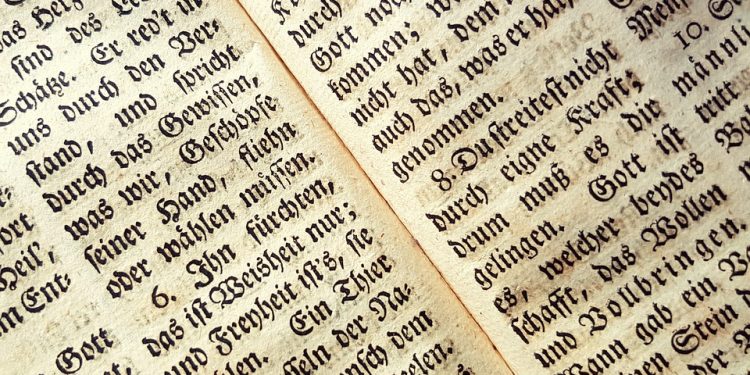 ſind des
Schätze. Er red't in
uns durch den Ver-
ſtand, und ſpricht
durch das Gewiſſen,
was wir, Geſchöpfe
ſeiner Hand, fliehn
oder wählen müſſen.
6. Ihn fürchten,
das iſt Weisheit nur;
und Freyheit iſt's, ſie
Ein Thier
der Na-
dem
Ent-
Gott
durch
Gott
kommen;
nicht hat, dem
auch das, was er hat,
genommen.
8. Du ſtreiteſt nicht
durch eigne Kraft;
drum muß es dir
gelingen. Gott iſt
es, welcher beydes
ſchafft, das Wollen
und Vollbringen.
Wann gab ein
Stein
10.
tritt